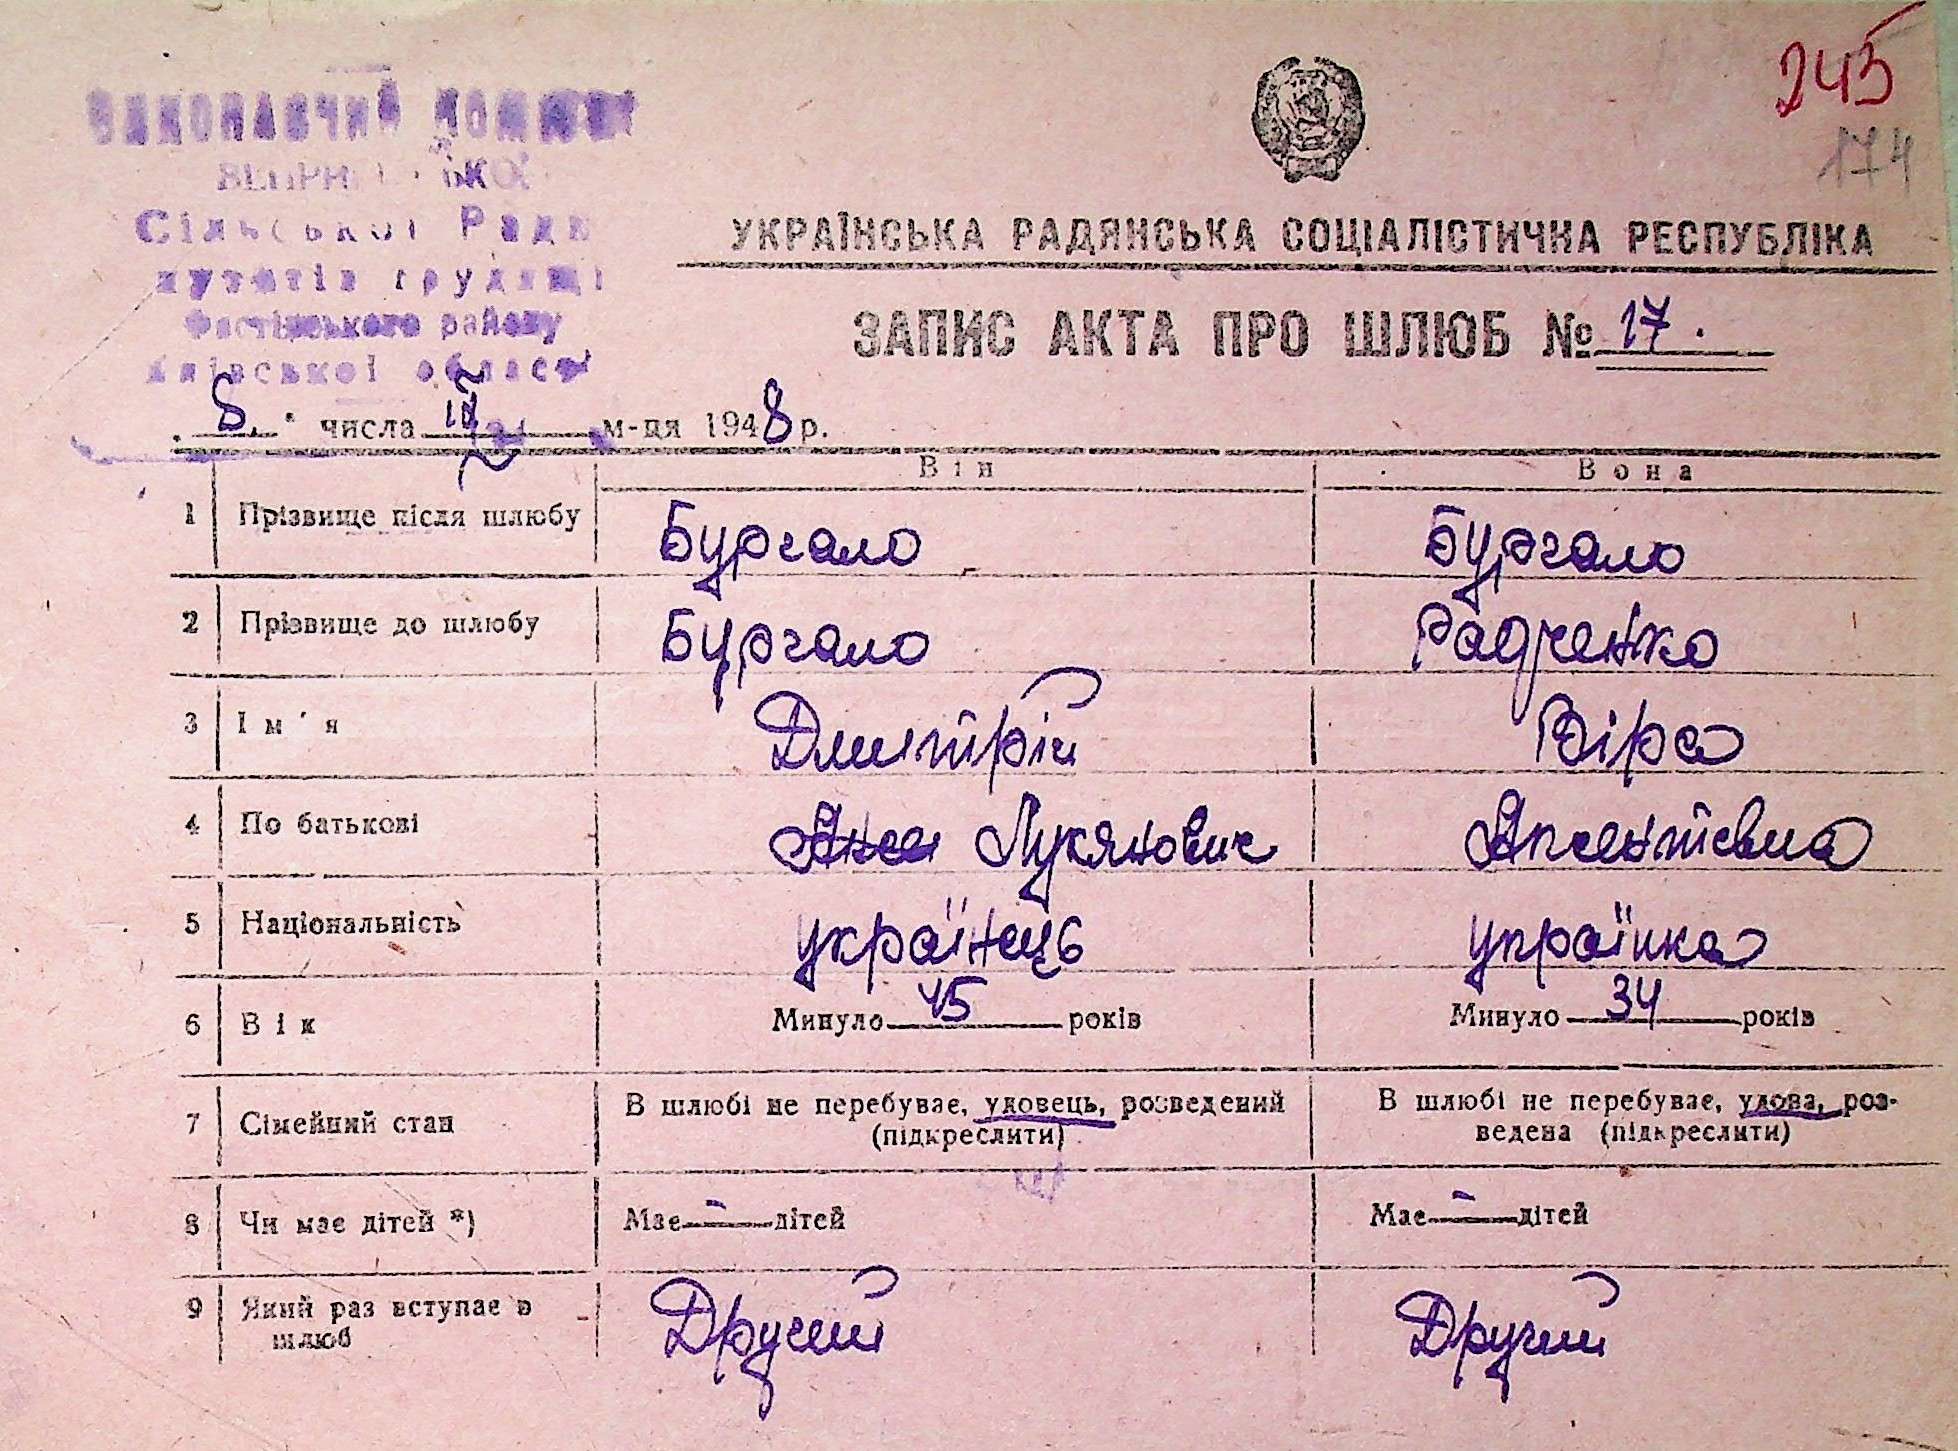 245
174
ВИКОНАВЧИЙ КОМІТЕТ
Сільської Ради
путатів трудящ
Фастівського району
Київської області
УКРАЇНСЬКА РАДЯНСЬКА СОЦІАЛІСТИЧНА РЕСПУБЛІКА
ЗАПИС АКТА ПРО ШЛЮБ № 17.
8. числа м-ця 1948 р.
Він Вона
1 Прізвище після шлюбу Бургало Бургало
2 Прізвище до шлюбу Бургало Радченко
3 Ім'я Дмитрій Віра
4 По батькові Лукянович Аксентієвна
5 Національність українець українка
6 Вік Минуло 45 років Минуло 34 років
7 Сімейний стан В шлюбі не перебуває, удовець, розведений (підкреслити) В шлюбі не перебуває, удова, роз-
ведена (підкреслити)
8 Чи має дітей *) Має - дітей Має - дітей
9 Який раз вступає в шлюб Другий Другий